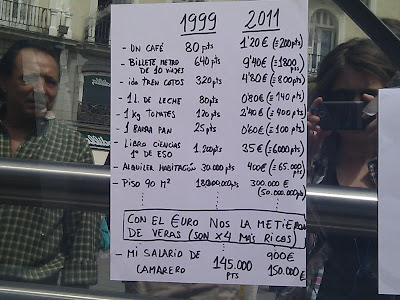 1999 2011
- UN CAFÉ 80 pts 1'20 € (= 200 pts)
- BILLETE METRO DE 10 VIAJES 640 pts 9'40 € (= 1800 pts)
- ida TREN COTOS 320 pts 4'80 € (= 800 pts)
- 1 L. DE LECHE 80 pts 0'80 € (= 140 pts)
- 1 Kg TOMATES 120 pts 2'40 € (= 400 pts)
- 1 BARRA PAN 25 pts 0'60 € (= 100 pts)
- LIBRO CIENCIAS 1º DE ESO 1.200 pts 35 € (= 6000 pts)
- ALQUILER HABITACIÓN 30.000 pts 400 € (= 65.000 pts)
- PISO 90 M² pts 300.000 € (50.000.000 pts)
CON EL €URO NOS LA METIERON
DE VERAS (SON X4 MÁS RICOS)
- MI SALARIO DE CAMARERO 145.000 PTS 900 € 150.000